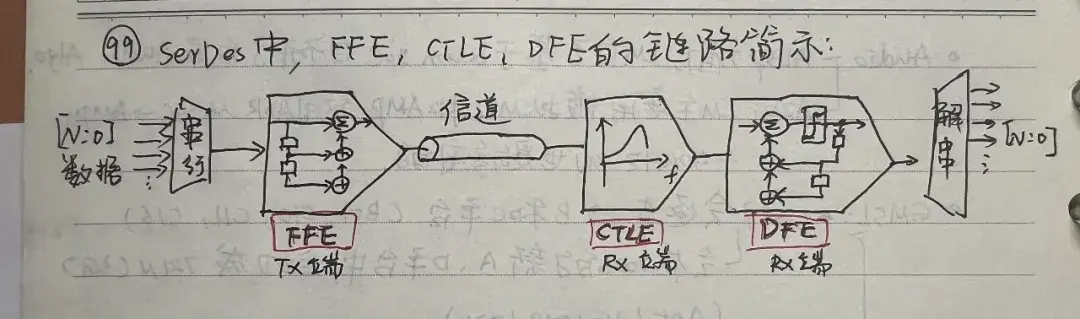 99 SerDes中, FFE, CTLE, DFE的链路简示:
[N:0]
数据
串行
信道
f
解串
[N:0]
FFE
Tx端
CTLE
Rx端
DFE
Rx端